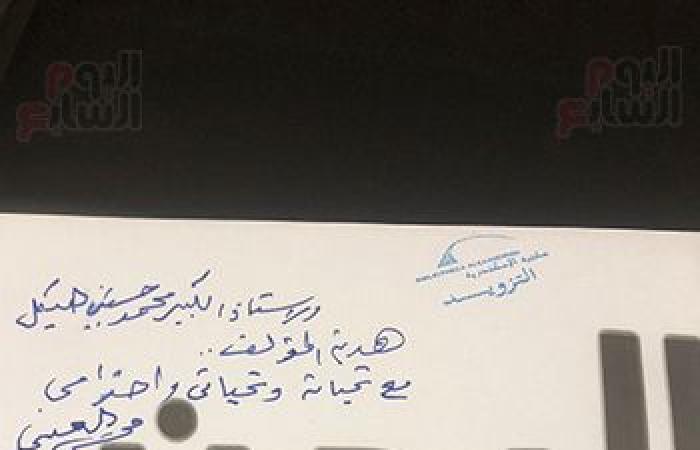 اليوم السابع
اليوم السابع
BIBLIOTHECA ALEXANDRINA
مكتبة الإسكندرية
التزويد
الأستاذ الكبير محمد حسنين هيكل
هدية المؤلف ..
مع تحياتي واحترامي